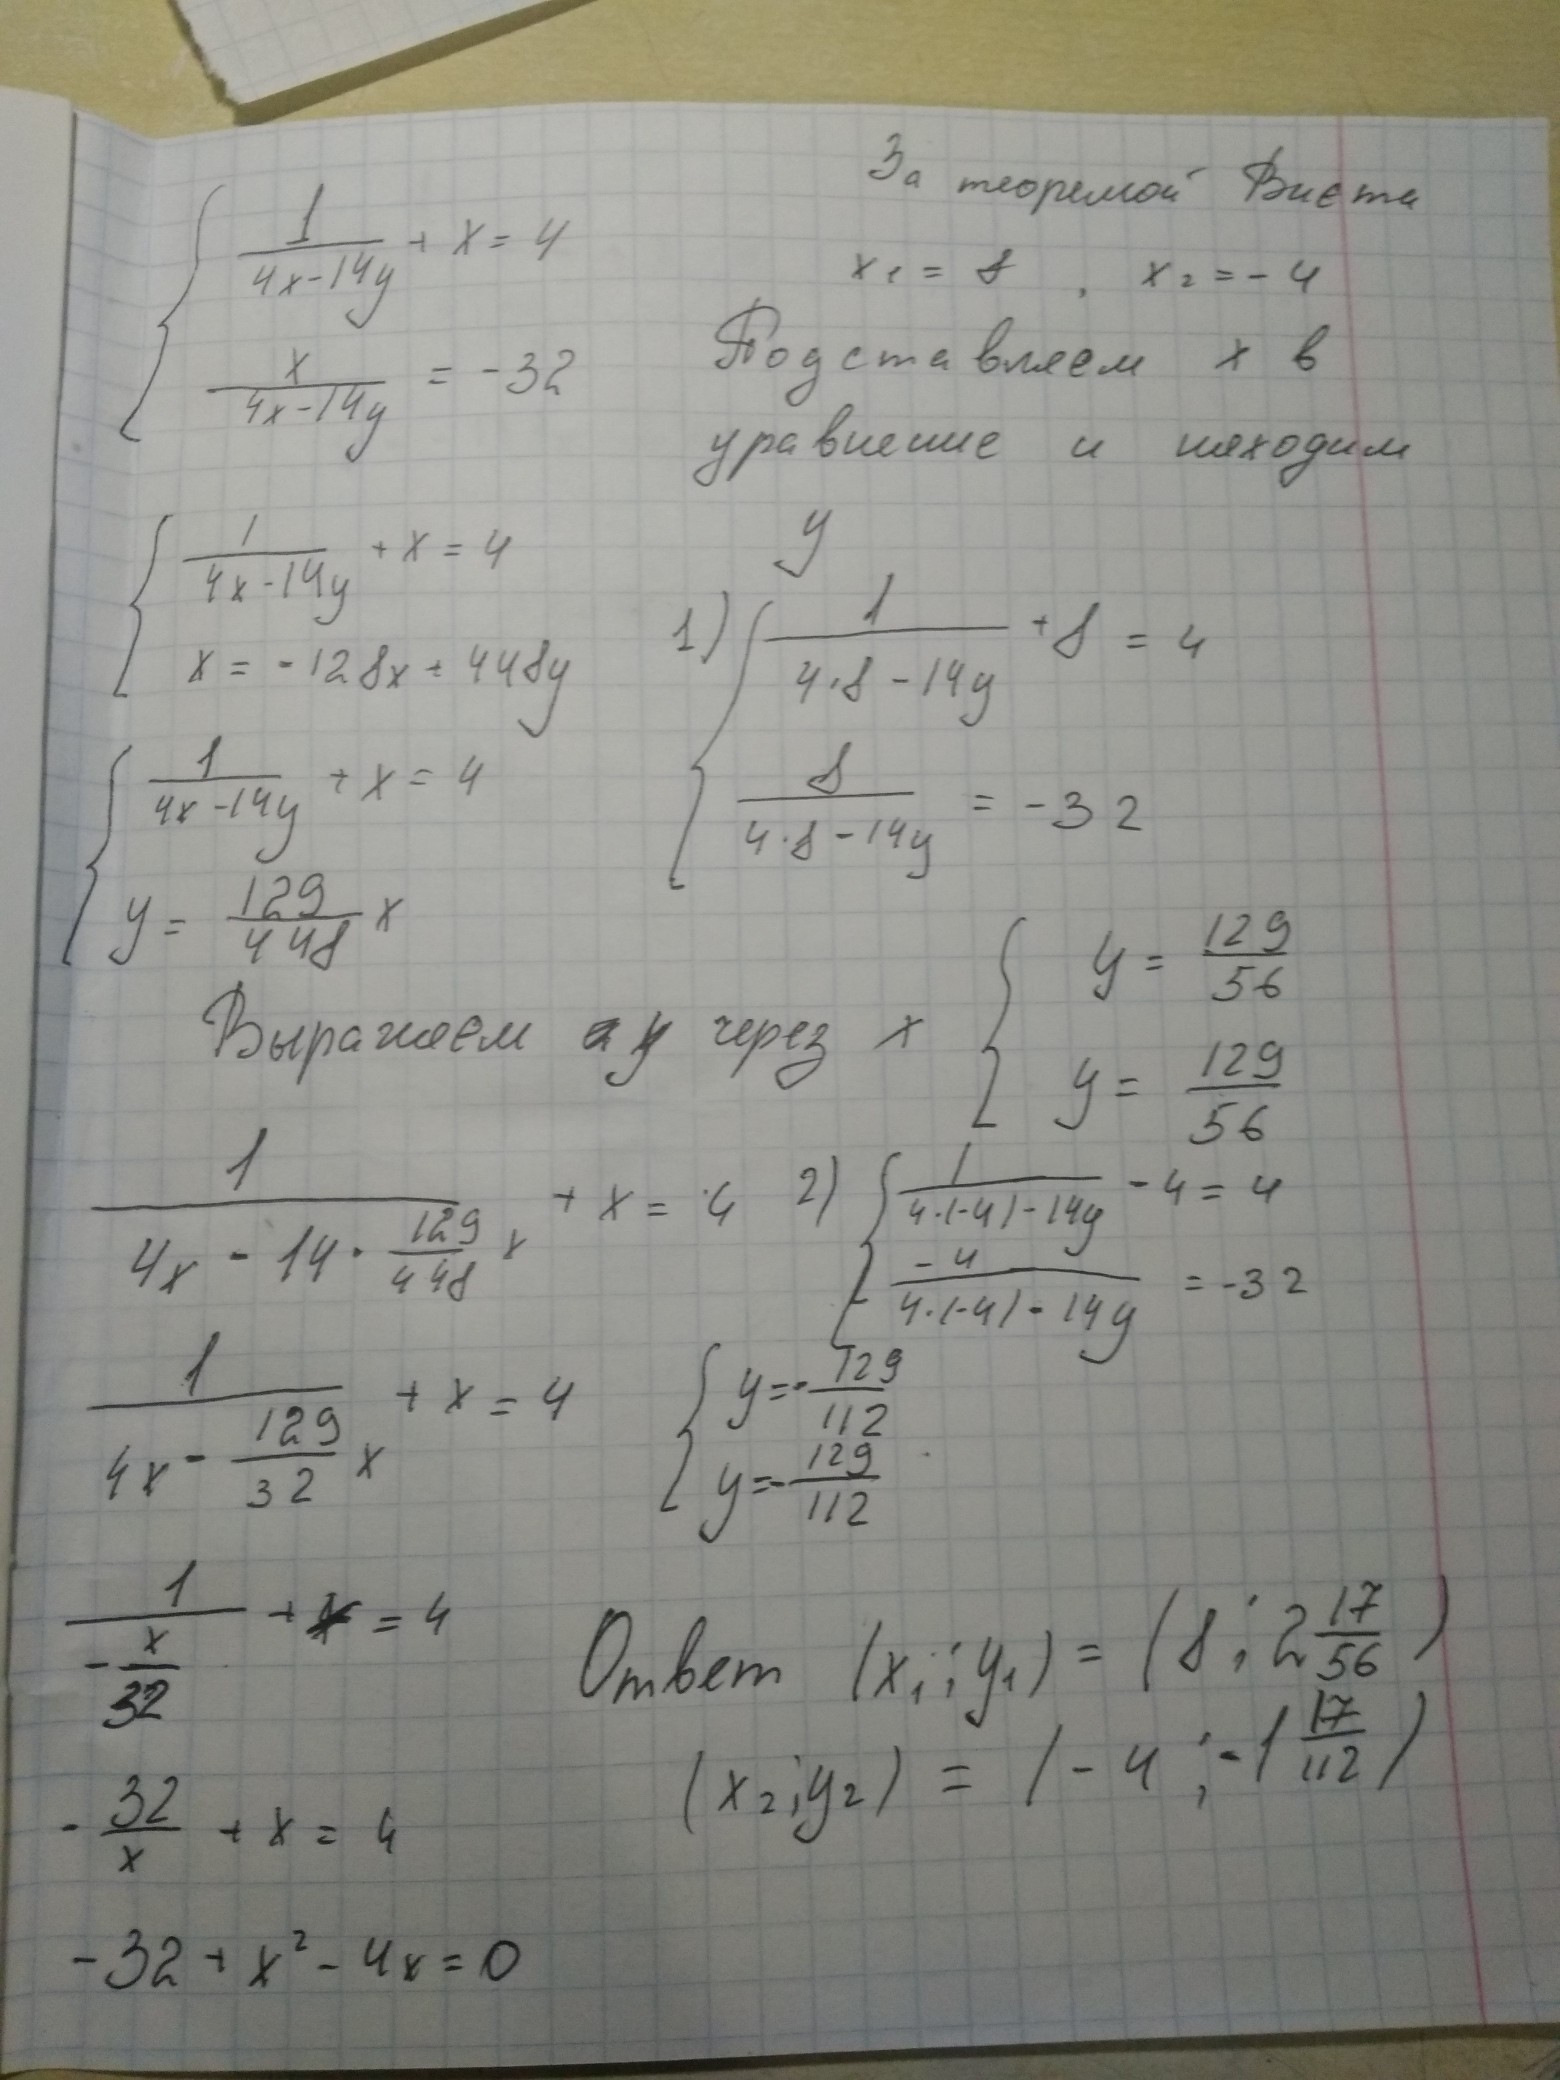 { 1/(4x-14y) + x = 4
x/(4x-14y) = -32
{ 1/(4x-14y) + x = 4
x = -128x + 448y
{ 1/(4x-14y) + x = 4
y = 129/448 x
Выражаем y через x
1/(4x - 14 · 129/448 x) + x = 4
1/(4x - 129/32 x) + x = 4
1/(-x/32) + x = 4
-32/x + x = 4
-32 + x² - 4x = 0
За теоремой Виєта
x₁ = 8 , x₂ = -4
Подставляем x в
уравнение и находим
y
1) { 1/(4·8-14y) + 8 = 4
8/(4·8-14y) = -32
{ y = 129/56
y = 129/56
2) { 1/(4·(-4)-14y) - 4 = 4
-4/(4·(-4)-14y) = -32
{ y = -129/112
y = -129/112
Ответ (x₁; y₁) = (8; 2 17/56)
(x₂; y₂) = (-4; -1 17/112)